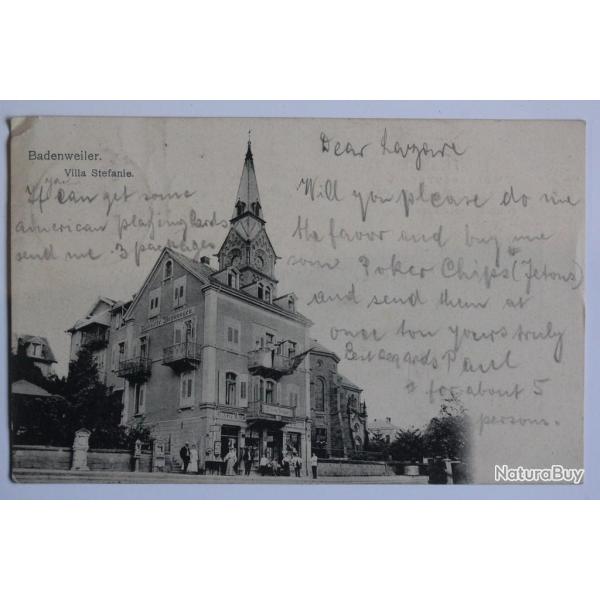 Badenweiler.
Villa Stefanie.
Dear Lazare
Will you please do me
the favor and buy me
som Poker Chips (Jetons)
and send them at
once ton yours truly
Best regards Paul
* for about 5
persons.
you
If can get some
american playing Cards
send me 3 packages
NaturaBuy